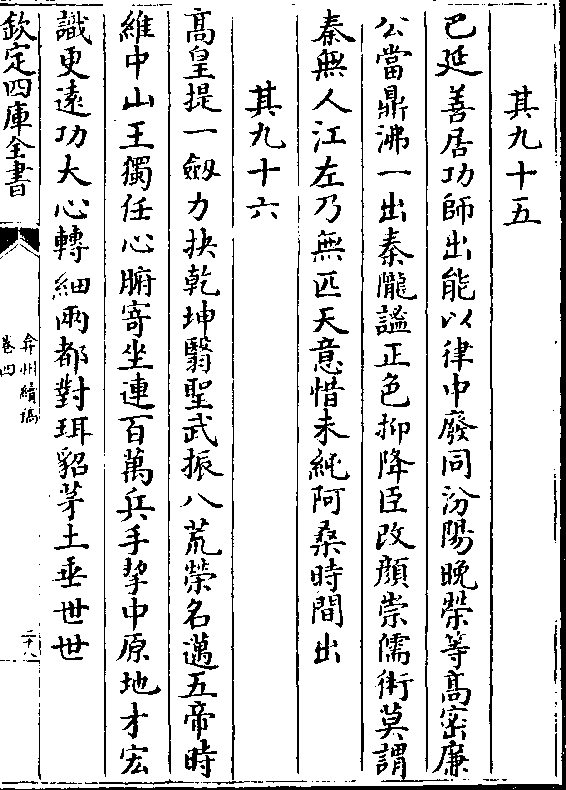 其九十五
巴延善居功師出能以律中廢同汾陽晚榮等高密廉
公當鼎沸一出秦隴謐正色抑降臣改顔崇儒術莫謂
秦無人江左乃無匹天意惜未純阿桑時間出
其九十六
高皇提一劔力抉乾坤翳聖武振八荒榮名邁五帝時
維中山王獨任心腑寄坐連百萬兵手挈中原地才宏
識更遠功大心轉細兩都對珥貂茅土垂世世
欽定四庫全書
弇州續稿
卷四
二十八